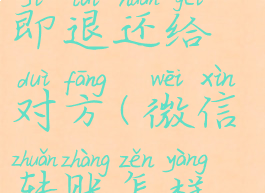 即退还给
duì fāng wēi xìn
对方(微信
zhuǎn zhàng zěn yàng
转账怎样